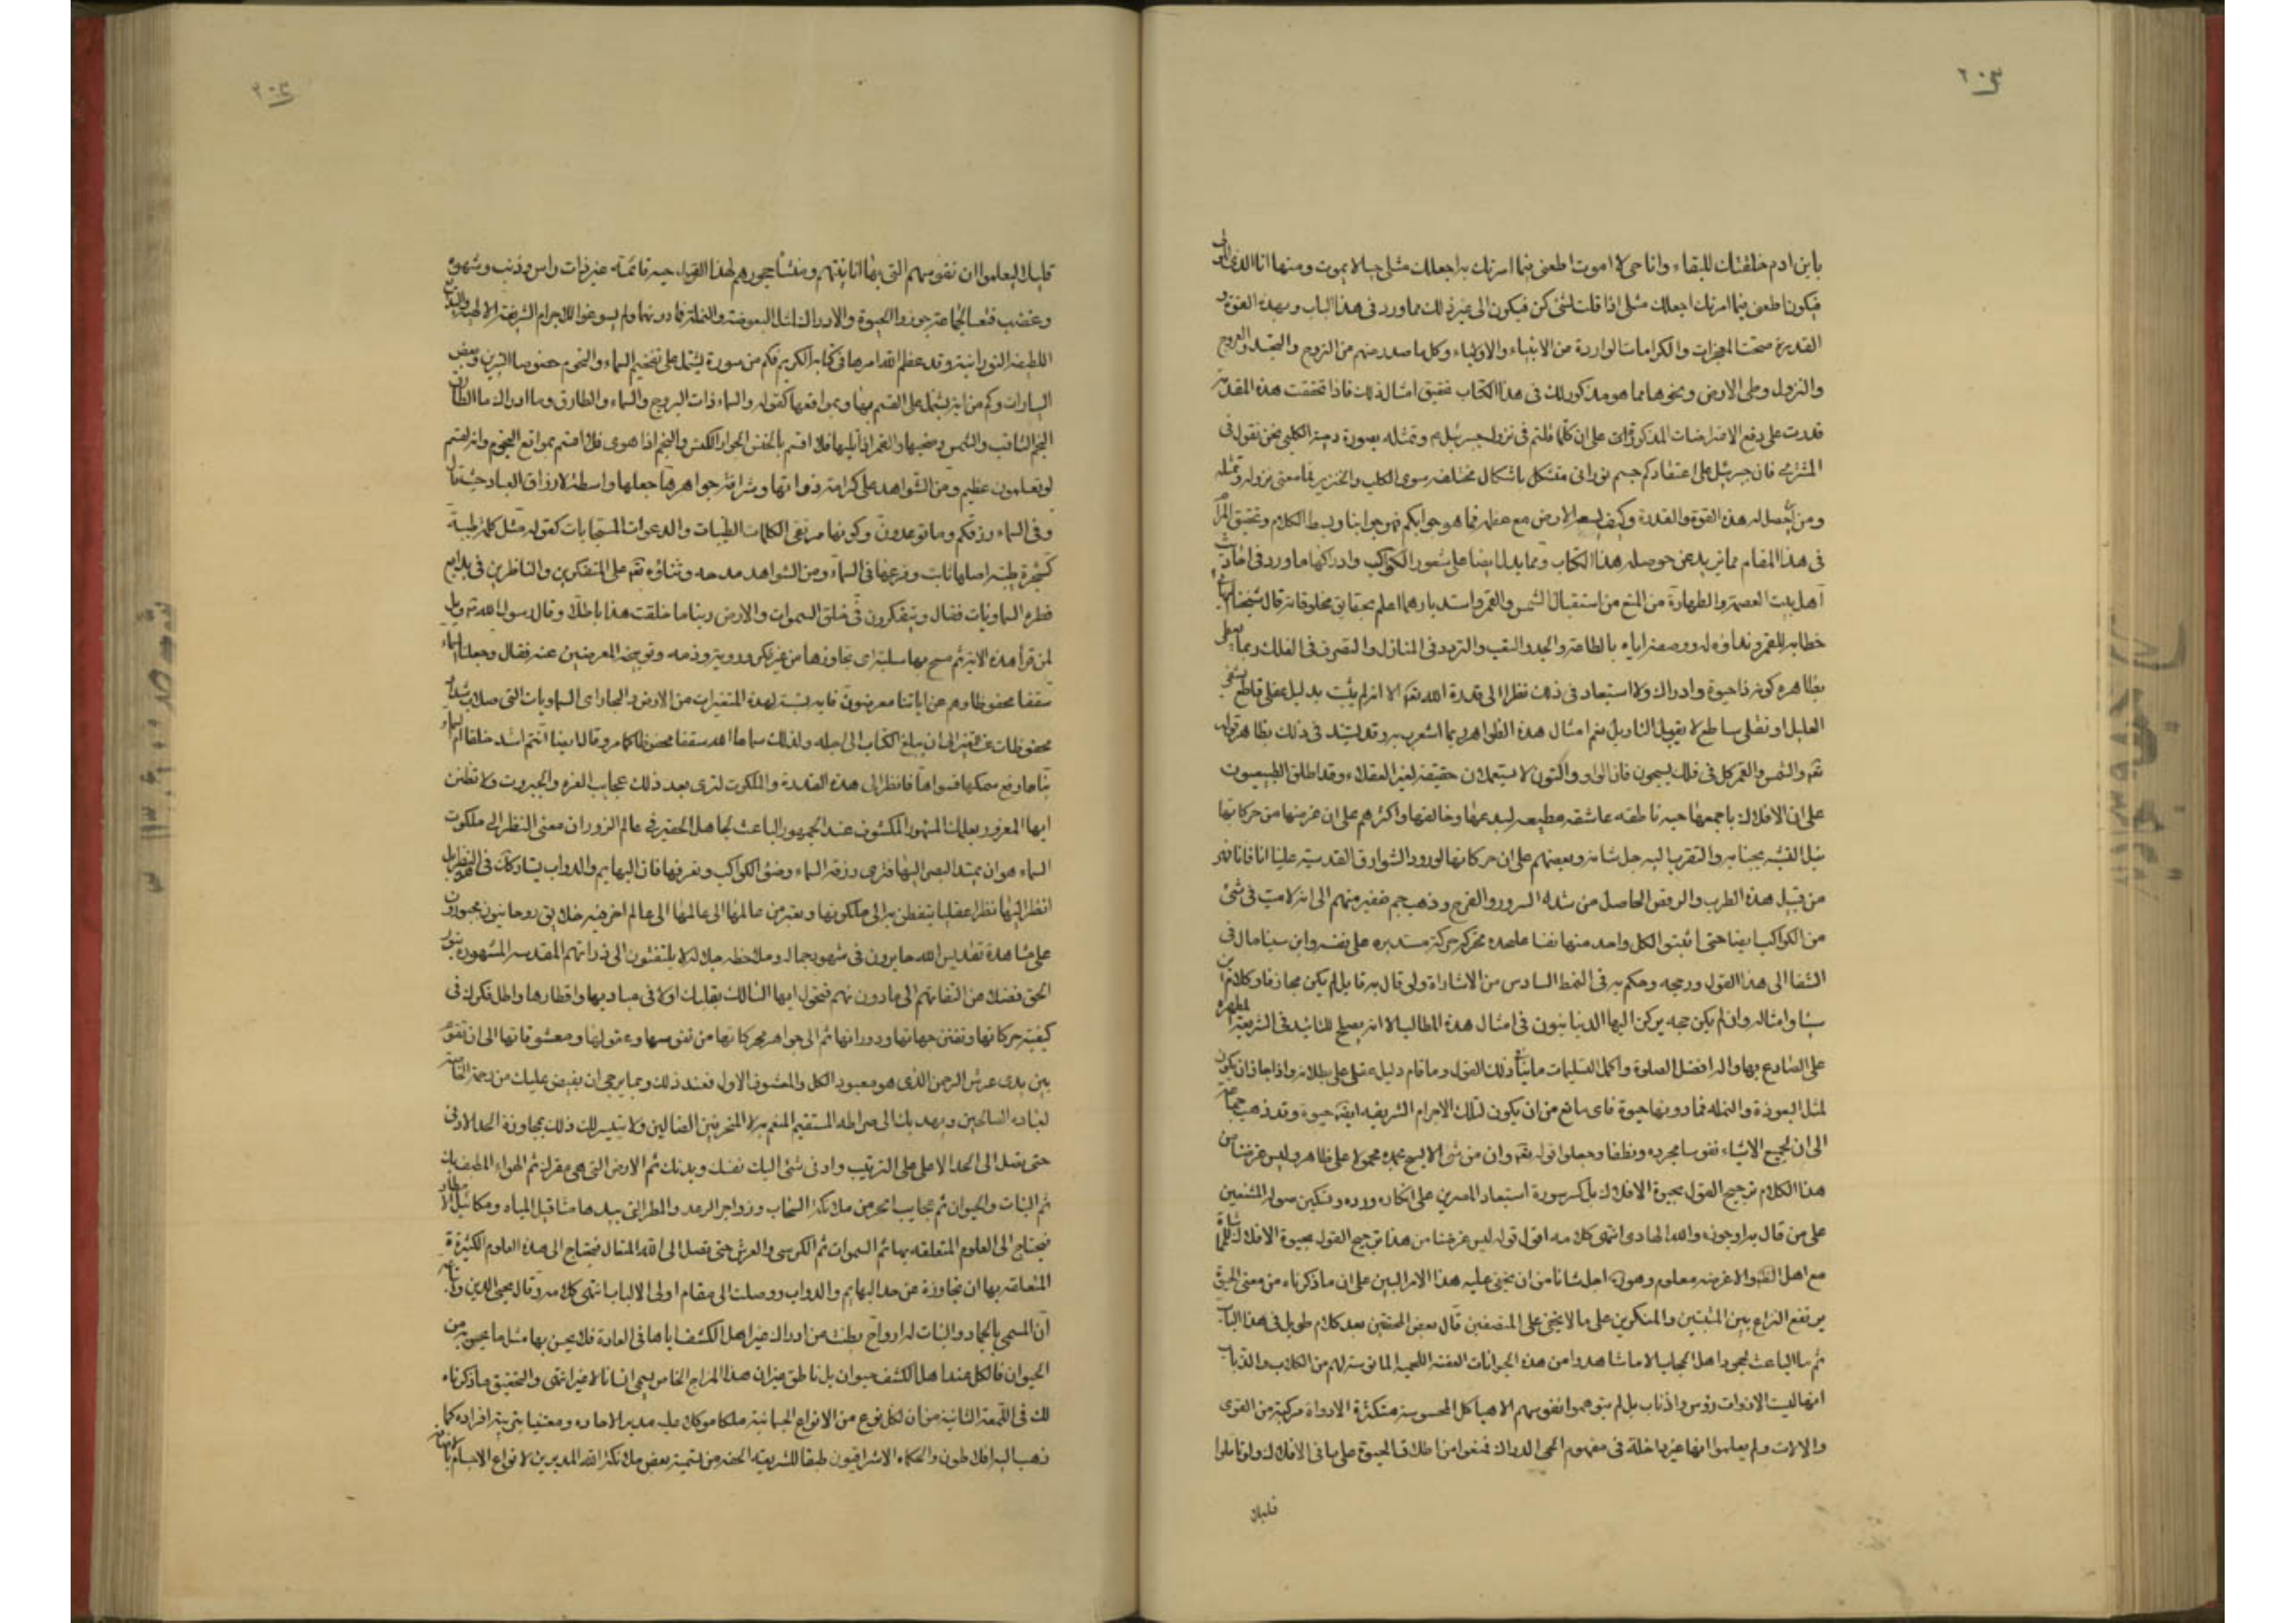 ٢٠٣
يابن ادم خلقتك للبقاء وانا حى لا اموت اطعنى فيما امرتك به اجعلك مثلى حيا لا يموت ومنها انا الذى اقول
فيكون اطعنى فيما امرتك اجعلك مثلى اذا قلت لشئ كن فيكون الى غير ذلك مما ورد فى هذا الباب وبهذه القوة و
القدرة صحت المعجزات والكرامات الواردة من الانبياء والاولياء وكل ما صدر منهم من التروح والتجسد والعروج
والنزول وطى الارض ونحوها مما هو مذكور لك فى هذا الكتاب تحقيق امثال ذلك فاذا تحققت هذه المقدمة
قدرت على دفع الاعتراضات المذكورة على ان كلما قلتم فى نزول جبرئيل وتمثله بصورة دحية الكلبى نحن نقول فى
فان جبرئيل على اعتقادكم جسم نورانى متشكل باشكال مختلفة سوى الكلب والخنزير فما معنى نزوله وتمثله
ومن اين حصل له هذه القوة والقدرة وكيف يسعه الارض مع عظمه فما هو جوابكم فهو جوابنا وبسط الكلام وتحقيق المرام
فى هذا المقام مما يزيد عن حوصلة هذا الكتاب ومما يدل ايضا على شعور الكواكب وادراكها ما ورد فى
اهل بيت العصمة والطهارة من المنع من استقبال الشمس والقمر واستدبارهما اعلم بحقايق مخلوقاته قال شيخنا البهائى
خطابه للقمر ونداؤه له ووصفه اياه بالطاعة والجد والتعب والتردد فى المنازل والتصرف فى الفلك ربما يعطى
بظاهره كونه ذا حيوة وادراك ولا استبعاد فى ذلك نظرا الى قدرة الله تعالى الا انه لم يثبت بدليل عقلى قاطع يشفى
العليل او نقلى ساطع لا يقبل التاويل نعم امثال هذه الظواهر ربما اشعرت به وقد يستند فى ذلك بظاهر قوله
تعالى والشمس والقمر كل فى فلك يسبحون فان الواو والنون لا يستعملان حقيقة لغير العقلاء وقد اطلق الطبيعيون
على ان الافلاك باجمعها حية ناطقة عاشقة مطيعة لمبدعها وخالقها واكثرهم على ان غرضها من حركاتها
نيل التشبه بجنابه والتقرب اليه جل شانه وبعضهم على ان حركاتها لورود الشوارق القدسية عليها انا فانا فهى
من قبيل هذه الطرب والرقص الحاصل من شدة السرور والفرح وذهب جم غفير منهم الى انه لا ميت فى شئ
من الكواكب ايضا حتى اثبتوا لكل واحد منها نفسا عليحدة تحركه حركة مستديرة على نفسه وابن سينا مال فى
الشفا الى هذا القول ورجحه وحكم به فى النمط السادس من الاشارات ولو قال به قايل لم يكن مجازفا وكلام ابن
سينا وامثاله وان لم يكن حجة يركن اليها الديانيون فى امثال هذه المطالب الا انه يصلح للتائيد فى الشريعة المطهرة
على الصادع بها واله افضل الصلوة واكمل التسليمات ما ينافى ذلك القول وما قام دليل عقلى على بطلانه واذا جاز ان يكون
لمثل البعوضة والنملة فما دونها حيوة فاى مانع من ان يكون لتلك الاجرام الشريفة ايضا حيوة وقد ذهب جماعة
الى ان لجميع الاشياء نفوسا مجردة ونطقا وجعلوا قوله تعالى وان من شئ الا يسبح بحمده محمولا على ظاهره وليس غرضنا من
هذا الكلام ترجيح القول بحيوة الافلاك بل كسر سورة استبعاد المصرين على انكاره ورده وتسكين صولة المشنعين
على من قال به او جوزه والله الهادى انتهى كلامه اقول قوله ليس غرضنا من هذا ترجيح القول بحيوة الافلاك
مع اهل معلوم وهو اجل شانا من ان يخفى عليه هذا الامر البين على ان ما ذكرناه من معنى الحيوة
يرتفع النزاع بين المثبتين والمنكرين على ما لا يخفى على المنصفين قال بعض المحققين بعد كلام طويل فى هذا الباب
ثم ما الباعث لجحود اهل الحجاب الا ما شاهدوا من هذه الحيوانات العفنة اللحمية المانوسة لهم من الكلاب والذباب
انها ليست الا ذوات رؤس واذناب بل لم يتوهموا نفوسهم الا هياكل المحسوسة متكثرة الادوات مركبة من القوى
والالات ولم يعلموا انها غير داخلة فى مفهوم الحى الدراك فمنعوا من اطلاق الحيوة على ما فى الافلاك ولو تاملوا
قليلا
٢٠٤
قليلا ليعلموا ان نفوسهم التى بها انانيتهم ومنشا جحودهم لهذا القول حية قائمة غير ذات راس وذنب وشهوة
وغضب فتعسا لجماعة جوزوا الحيوة والادراك لمثل البعوضة والنملة فما دونها ولم يسوغوا للاجرام الشريفة الالهية
اللطيفة النورانية وقد عظم الله امرها فى كتابه الكريم فكم من سورة يشتمل على تفخيم السماء والنجوم خصوصا النيرين وبعض
السيارات وكم من اية يشتمل على القسم بها وبمواقعها كقوله والسماء ذات البروج والسماء والطارق وما ادراك ما الطارق
النجم الثاقب والشمس وضحيها والقمر اذا تليها فلا اقسم بالخنس الجوار الكنس والنجم اذا هوى فلا اقسم بمواقع النجوم وانه لقسم
لو تعلمون عظيم ومن الشواهد على كرامة ذواتها وشرافة جواهرها جعلها واسطة لارزاق العباد حيث قال
وفى السماء رزقكم وما توعدون وكونها مرتقى الكلمات الطيبات والدعوات المستجابات كقوله مثل كلمة طيبة
كشجرة طيبة اصلها ثابت وفرعها فى السماء ومن الشواهد مدحه وثناؤه تعالى على المتفكرين والناظرين فى بدايع
فطرة السماويات فقال ويتفكرون فى خلق السموات والارض ربنا ما خلقت هذا باطلا وقال رسول الله ويل
لمن قرأ هذه الاية ثم مسح بها سبلته اى تجاوزها من غير فكر وروية وذمه وتوبيخه المعرضين عنه فقال وجعلنا السماء
سقفا محفوظا وهم عن اياتنا معرضون فاية نسبة لهذه المتغيرات من الارض والبحار الى السماويات التى صلاب شداد
محفوظات عن التغير الى ان يبلغ الكتاب الى اجله ولذلك سماها الله سقفا محفوظا كما مر وقال ايضا ءانتم اشد خلقا ام السماء
بناها رفع سمكها فسواها فانظر الى هذه القدرة والملكوت لترى بعد ذلك عجايب العزة والجبروت ولا تظنن
ايها المغرور بعلمك المشهور المكشوف عند الجمهور الباعث لجاهل الحقير فى عالم الزور ان معنى النظر الى ملكوت
السماء هو ان يمتد البصر اليها فترى زرقة السماء وضوء الكواكب وتفرقها فان البهايم والدواب يشاركك فى النظر بل
انظر اليها نظرا عقليا يتفطن به الى ملكوتها ويعبر من عالمها الى عالم اخر فيه خلايق روحانيون مجبورون
على مشاهدة تقديس الله حايرون فى شهود جماله وملاحظة جلاله لا يلتفتون الى ذواتهم المقدسة المشهورة بنور
الحق فضلا عن التفاتهم الى ما دونهم فتحول ايها السالك بقلبك اولا فى مباديها واقطارها واطل فكرك فى
كيفية حركاتها وتفنن جهاتها ودورانها ثم الى جواهر محركاتها من نفوسها وعقولها ومعشوقاتها الى ان تقوم
بين يدى عرش الرحمن الذى هو معبود الكل والمعشوق الاول فعند ذلك ربما يرجى ان يفيض عليك من رحمته الخاصة
لعباده الصالحين ويهديك الى صراطه المستقيم المنعم به لا المنحرفين الضالين ولا يتيسر لك ذلك بمجاوزة الحد الادنى
حتى يصل الى الحد الاعلى على الترتيب وادنى شئ اليك نفسك وبدنك ثم الارض التى هى مقرك ثم الهواء المطيف بك
ثم النبات والحيوان ثم عجايب الجو من ملائكة السحاب وزواجر الرعد والمطر التى بيدها مثاقيل المياه ومكائيل الامطار
فيحتاج الى العلوم المتعلقة بها ثم السموات ثم الكرسى والعرش حتى يصل الى الله المتعال فيحتاج الى هذه العلوم الكثيرة
المتعلقة بها ان تجاوزت عن حد البهايم والدواب ووصلت الى مقام اولى الالباب انتهى كلامه وقال محيى الدين
ان المسمى بالجماد والنبات له ارواح بطنت عن ادراك غير اهل الكشف اياها فى العادة فلا يحس بها مثل ما يحس من
الحيوان فالكل عند اهل الكشف حيوان بل ناطق غير ان هذا المزاج الخاص يسمى انسانا لا غير انتهى والتحقيق ما ذكرناه
لك فى اللمعة الثانية من ان لكل نوع من الانواع الجسمانية ملكا موكلا عليه مدبر لاحاده ومعتنيا بتربية افراده كما
ذهب اليه افلاطون والحكماء الاشراقيون طبقا للشريعة الحقة من تسمية بعض ملائكة الله المدبرين لانواع الاجسام